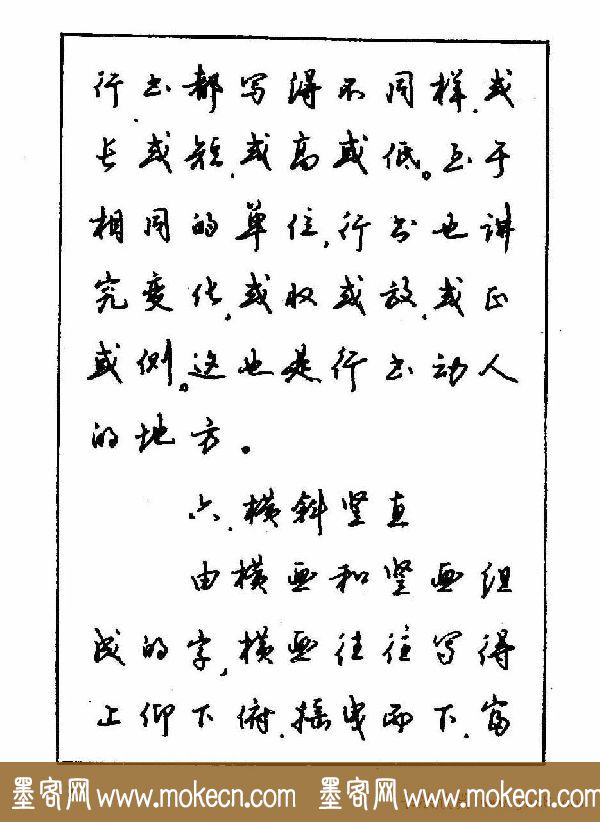 行书都写得不同样,或
长或短,或高或低。至于
相同的单位,行书也讲
究变化,或收或放,或正
或侧。这也是行书动人
的地方。
六、横斜竖直
由横画和竖画组
成的字,横画往往写得
上仰下俯,摇曳而下,富
墨客网 www.mokecn.com 墨客网 www.mokecn.com